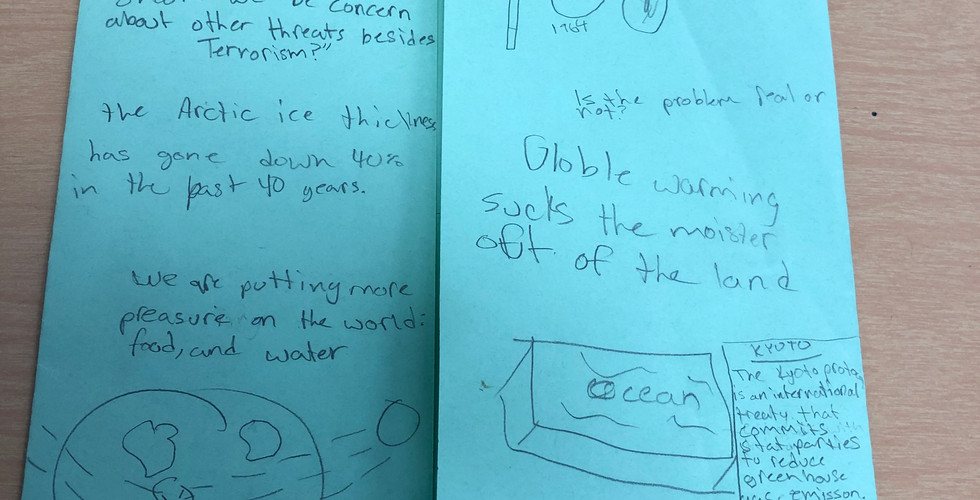 be concern
about other threats besides
Terrorism?"
the Arctic ice thickness
has gone down 40%
in the past 40 years.
We are putting more
pleasure on the world:
food, and water
1964
Is the problem real or
not?
Globle warming
sucks the moister
oft. of the land
Ocean
KYOTO
The Kyoto proto
is an international
treaty that
commits
stat parties
to reduce
greenhouse
emisson.